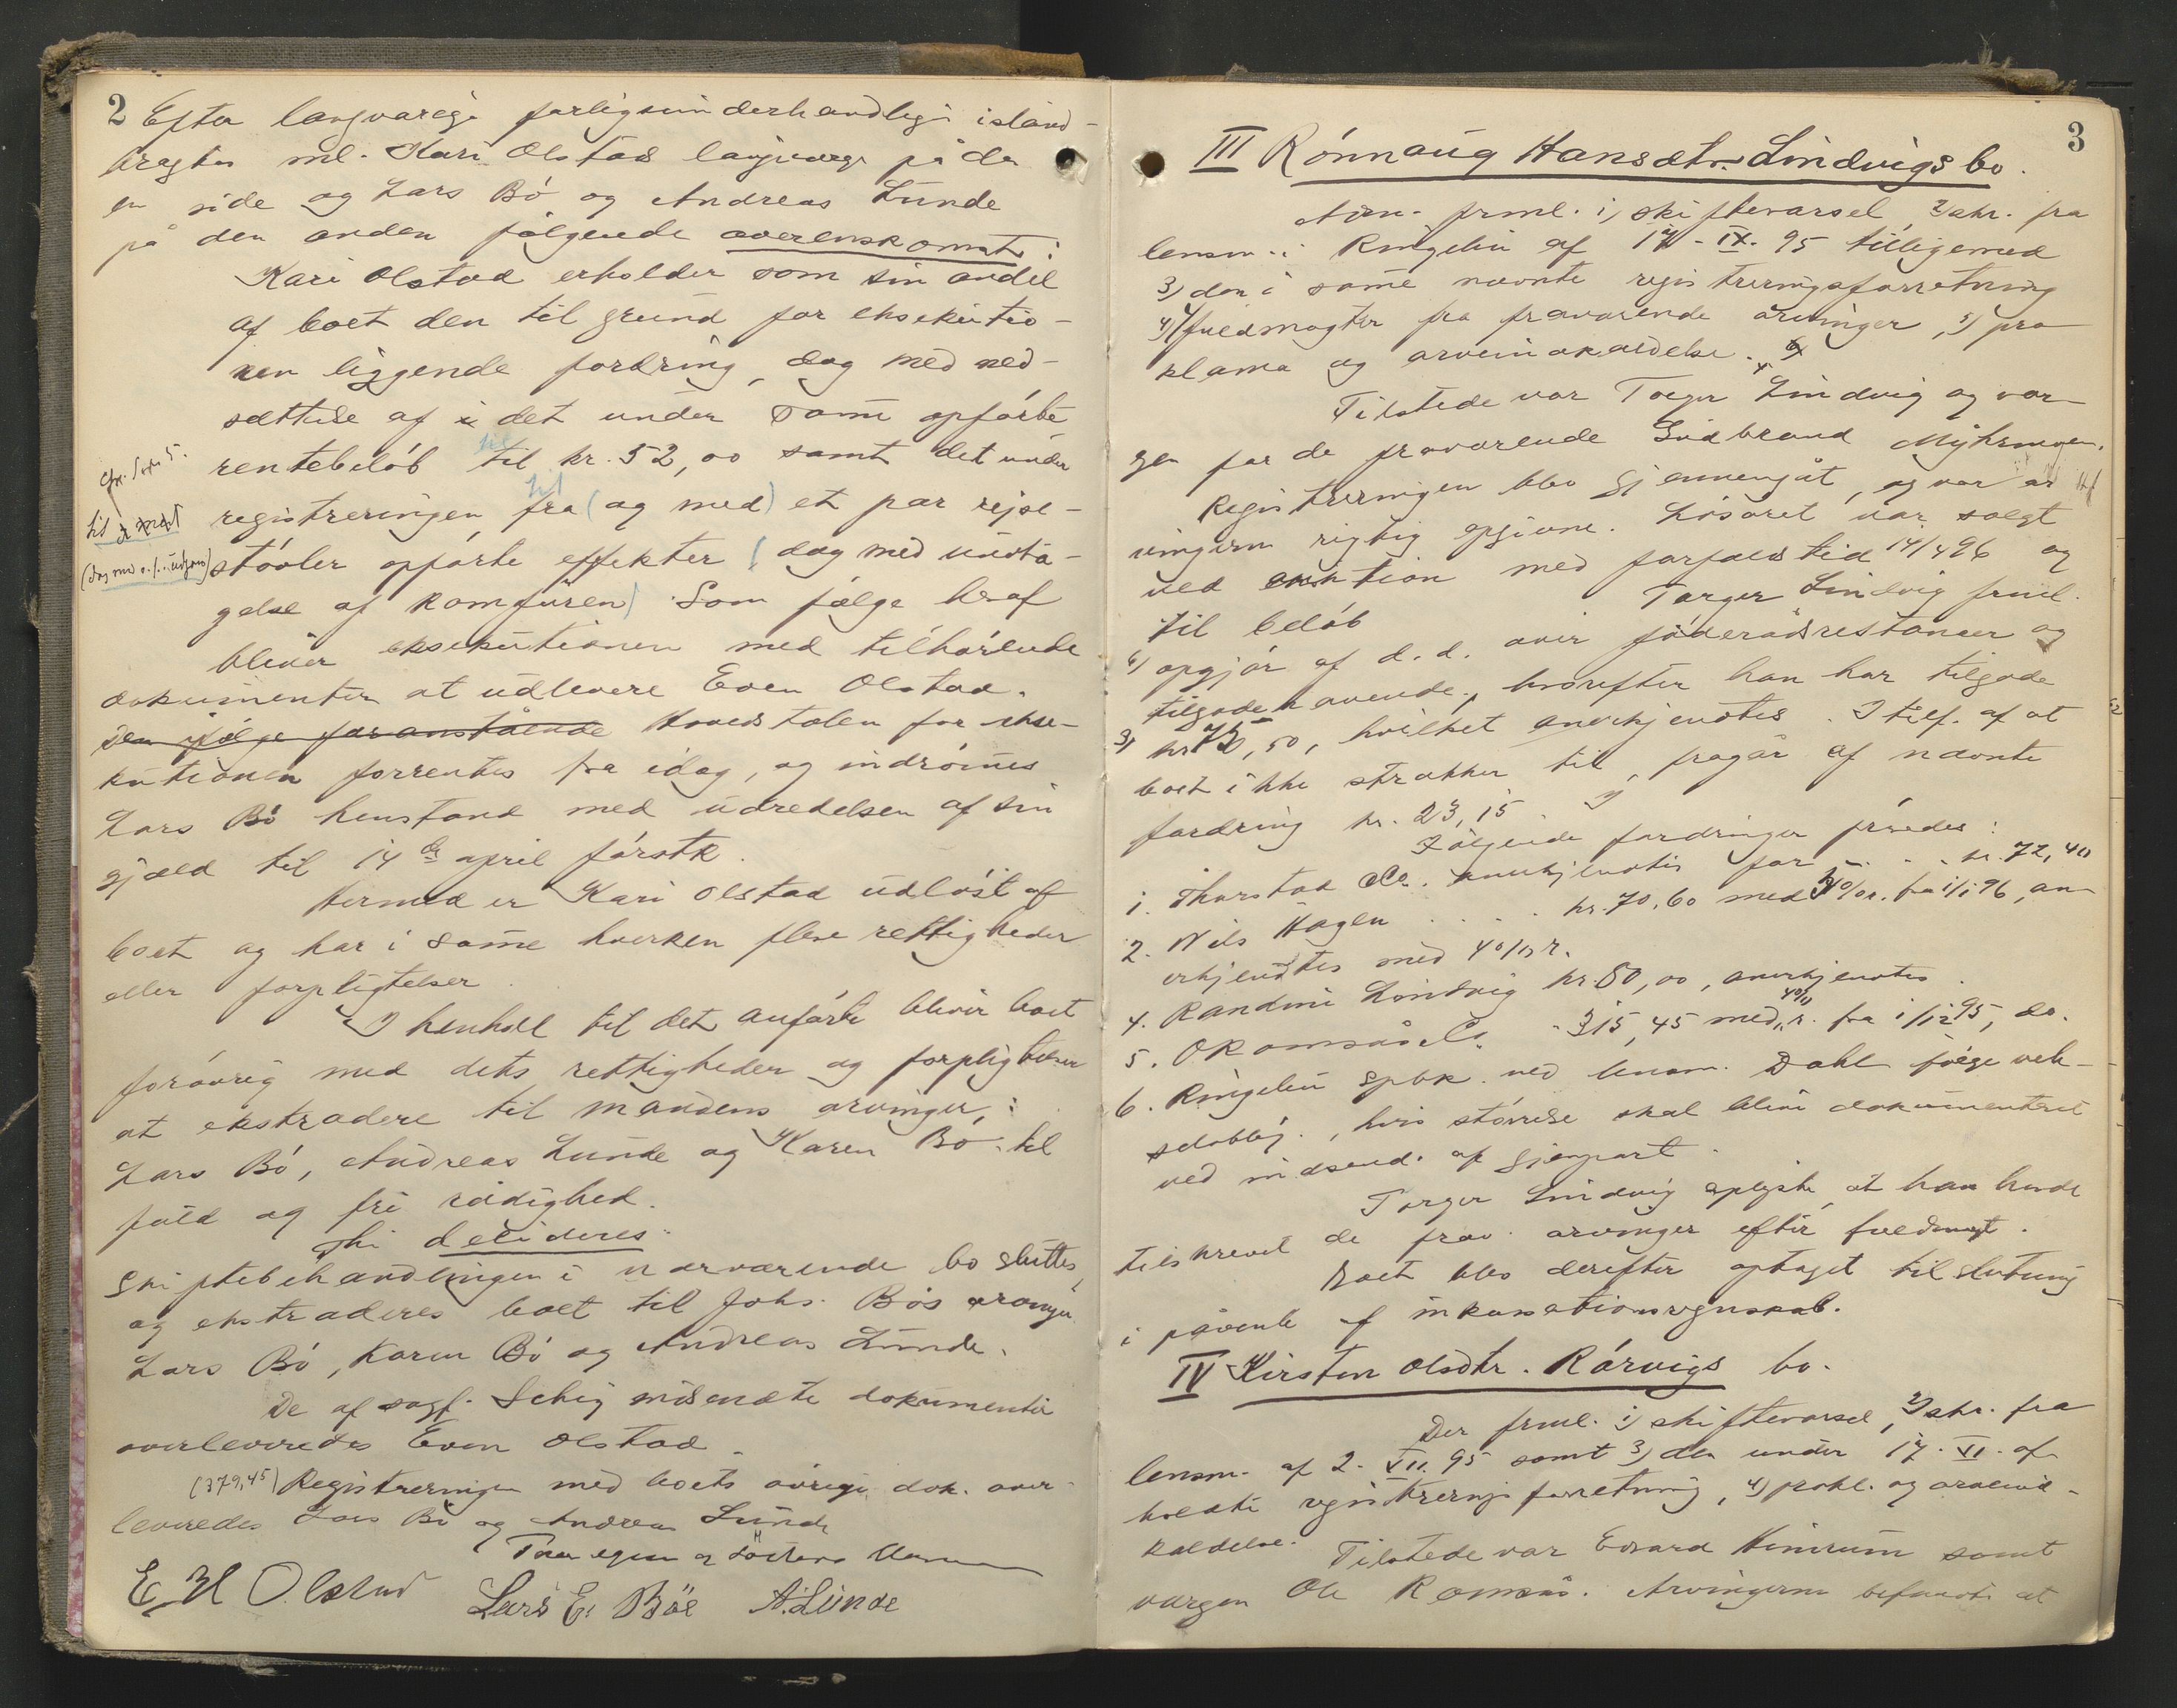 2
Efter langvarige forligsunderhandlinger istand-
bragtes ml. Kari Olstads laugværge på den
en side og Lars Bö og Andreas Lunde
på den anden fölgende overenskomst:
Kari Olstad erholder som sin andel
af boet den til grund for eksekutio-
nen liggende fordring, dog med ned-
sættelse af det under samme opförte
rentebelöb til kr. 52,00 samt det under
registreringen fra (og med) et par rejse-
stövler opförte effekter (dog med undta-
gelse af komfuren). Som fölge heraf
bliver eksekutionen med tilhörende
dokumenter at udlevere Even Olstad.
Den ifölge foranstående Hovedstolen for ekse-
kutionen forrentes fra idag, og indrömmes
Lars Bö henstand med udredelsen af sin
gjæld til 14de april förstk.
Hermed er Kari Olstad udlöst af
boet og har i samme hverken flere rettigheder
eller forpligtelser.
I henhold til det anförte bliver boet
forövrig med dets rettigheder og forpligtelser
at ekstradere til mandens arvinger:
Lars Bö, Andreas Lunde og Karen Bö til
fuld og fri rådighed.
Thi decideres:
Skiftebehandlingen i nærværende bo sluttes,
og ekstraderes boet til Johs. Bös arvinger
Lars Bö, Karen Bö og Andreas Lunde.
De af sagf. indsendte dokumenter
overleveredes Even Olstad.
(379,45) Registreringen med boets övrige dok. over-
leveredes Lars Bö og Andreas Lunde
For egen og
E H Olstad Lars E. Böe A. Lunde
3
III Rönnaug Hansdtr. Lindvigs bo.
Adm. freml. 1) skiftevarsel, 2) skr. fra
lensm. i Ringebu af 17-IX-95 tilligemed
3) den i samme nævnte registreringsforretning
4) fuldmagter fra fraværende arvinger, 5) pro-
klama og arveindkaldelse.
Tilstede var Torger Lindvig og vær-
gen for de fraværende Gudbrand Myhrmoen.
Registreringen blev gjennemgåt, og var ar-
vingerne rigtig opgivne. Lösöret var solgt
ved auktion med forfaldstid 14/4 96 og
til belöb Torger Lindvig freml.
6) opgjör af d.d. over föderådsrestancer og
tilgodehavende, hvorefter han har tilgode
3) kr. 75,50, hvilket anerkjendtes. I tilf. af at
boet ikke strækker til, fragår af nævnte
fordring kr. 23,15
Fölgende fordringer prövedes:
1. Thorstad & Co. anerkjendtes for . . . kr. 72,40
2. Nils Hagen . . . . kr. 70,60 med 5 % r. fra 1/1 96, an-
erkjendtes med 4 % r.
4. Randine Lindvig kr. 80,00, anerkjendtes.
5. O Romsås & Co. " 315,45 med 4 % r. fra 1/12 95, do.
6. Ringebu spbk. ved lensm. Dahl fölge vek-
selobblig., hvis störrelse skal blive dokumenteret
ved indsend. af gjenpart.
Torger Lindvig oplyste, at han havde
tilskrevet de frav. arvinger efter fuldmagt.
Boet blev derefter optaget til slutning
i påvente af inkassationsregnskab.
IV Kirsten Olsdtr. Rörvigs bo.
Der freml. 1) skiftevarsel, 2) skr. fra
lensm. af 2. XII. 95 samt 3) den under 17. XI. af-
holdte registreringsforretning, 4) prokl. og arveind-
kaldelse. Tilstede var Edvard Himrum samt
værgen Ole Romsås. Arvingerne befandtes at